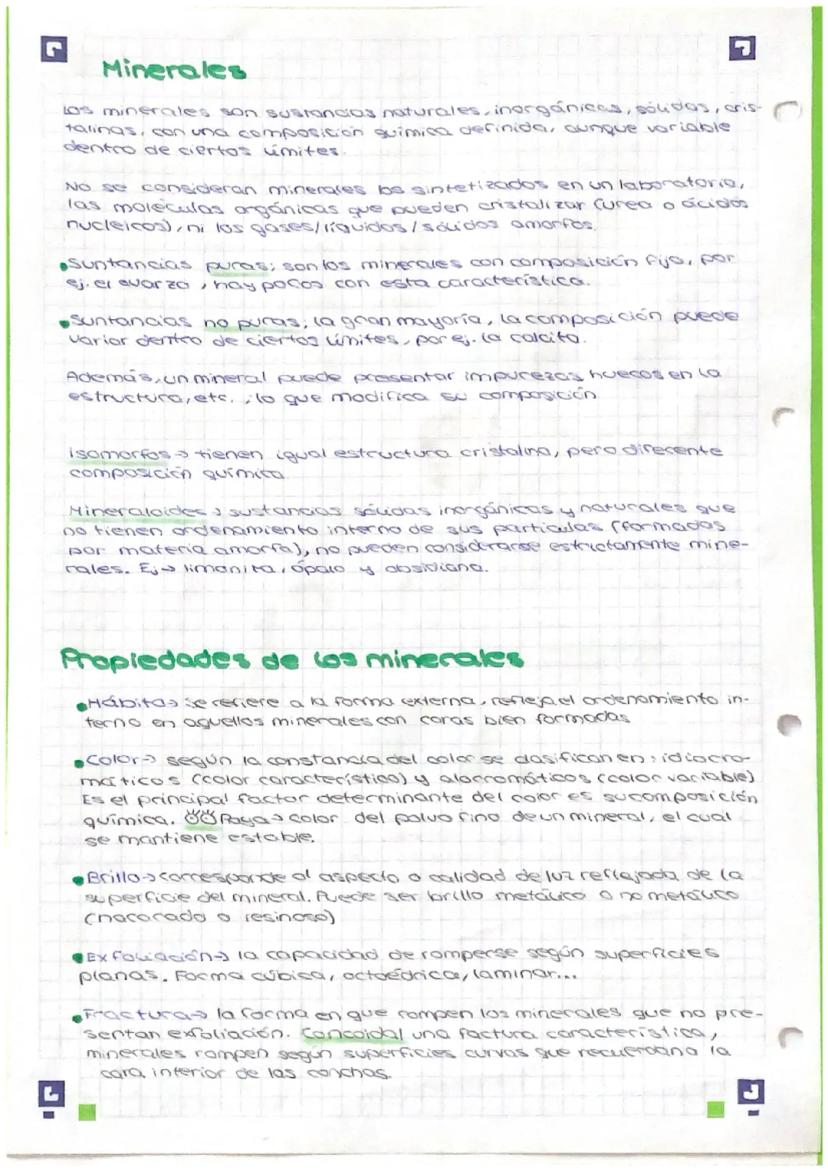 Minerales
Los minerales son sustancias naturales, inorgánicas, sólidas, cris-
talinas, con una composición química definida, aunque variable
dentro de ciertos límites.
No se consideran minerales los sintetizados en un laboratorio,
las moléculas orgánicas que pueden cristalizar (urea o ácidos
nucleicos), ni los gases/líquidos/sólidos amorfos.
•Suntancias puras; son los minerales con composición fija, por
ej. el cuarzo, hay pocos con esta característica.
•Suntancias no puras; la gran mayoría, la composición puede
variar dentro de ciertos límites, por ej. la calcita.
Además, un mineral puede presentar impurezas huecos en la
estructura, etc. ; lo que modifica su composición
Isomorfos → tienen igual estructura cristalina, pero diferente
composición química.
Mineraloides → sustancias sólidas inorgánicas y naturales que
no tienen ordenamiento interno de sus partículas (formados
por materia amorfa), no pueden considerarse estrictamente mine-
rales. Ej → limonita, ópalo y obsidiana.
Propiedades de los minerales
•Hábito → Se refiere a la forma externa, refleja el ordenamiento in-
terno en aquellos minerales con caras bien formadas
•Color → según la constancia del color se clasifican en: idiocro-
máticos (color característico) y alocromáticos (color variable)
Es el principal factor determinante del color es su composición
química. Raya → color del polvo fino de un mineral, el cual
se mantiene estable.
•Brillo → corresponde al aspecto o calidad de luz reflejada de la
superficie del mineral. Puede ser brillo metálico o no metálico
(nacorado o resinoso)
•Exfoliación → la capacidad de romperse según superficies
planas. Forma cúbica, octoédrica, laminar...
•Fractura → la forma en que rompen los minerales que no pre-
sentan exfoliación. Concoidal una factura característica,
minerales rompen según superficies curvas que recuerdana la
cara interior de las conchas.